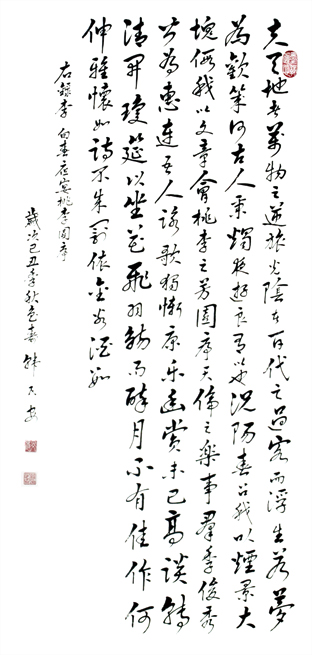 夫天地者萬物之逆旅光陰者百代之過客而浮生若夢
為歡幾何古人秉燭夜遊良有以也況陽春召我以煙景大
塊假我以文章會桃李之芳園序天倫之樂事群季俊秀
皆為惠連吾人詠歌獨慚康樂幽賞未已高談轉
清開瓊筵以坐花飛羽觴而醉月不有佳作何
伸雅懷如詩不成罰依金谷酒數
右錄李白春夜宴桃李園序
歲次己丑季秋